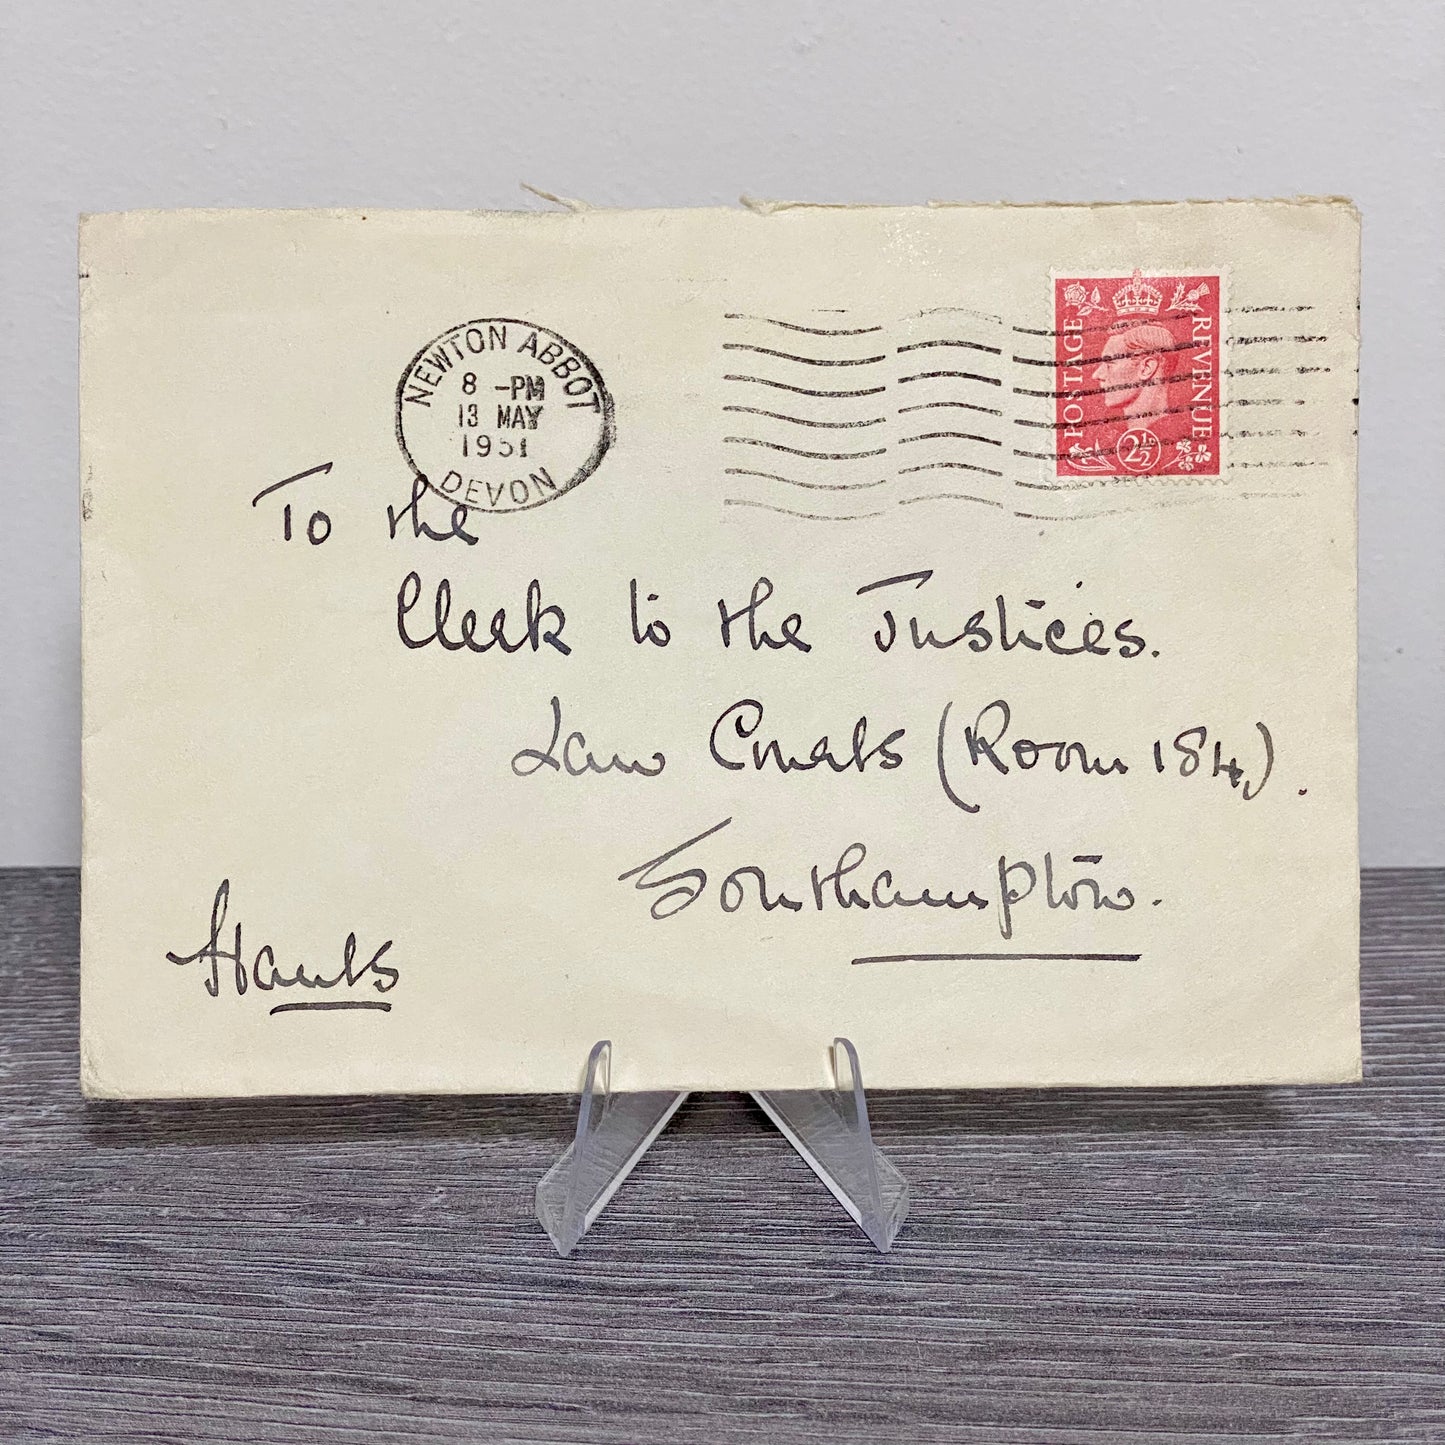 NEWTON ABBOT
8 - PM
13 MAY
1951
DEVON
POSTAGE
REVENUE
2½D
To the
Clerk to the Justices.
Law Courts (Room 184).
Southampton.
Hants